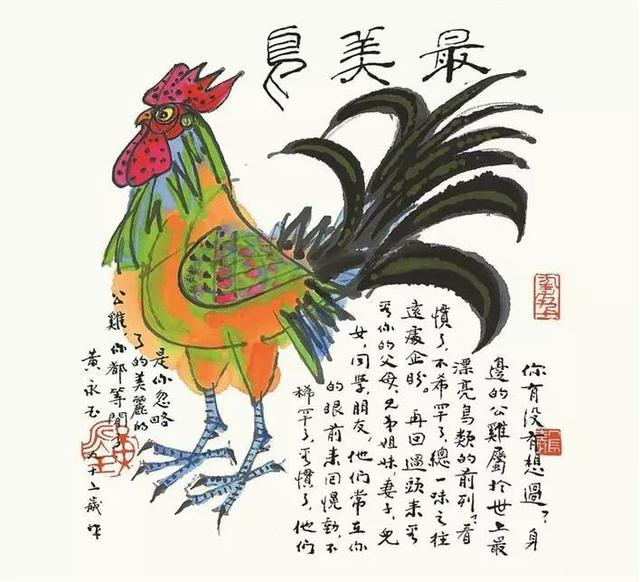 最美鳥
你有没有想過?身
邊的公雞屬於世上最
漂亮鳥類的前列?看
慣了,不希罕了,總一味之往
遠處企盼。再回過頭来看
看你的父母、兄弟姐妹妻子、兒
女,同學,朋友,他們常在你
的眼前来回愰動,不
稀罕了,看慣了,他們
是你忽略
了的美麗的
公雞,你都等閒了
黄永玉 九十二歲作